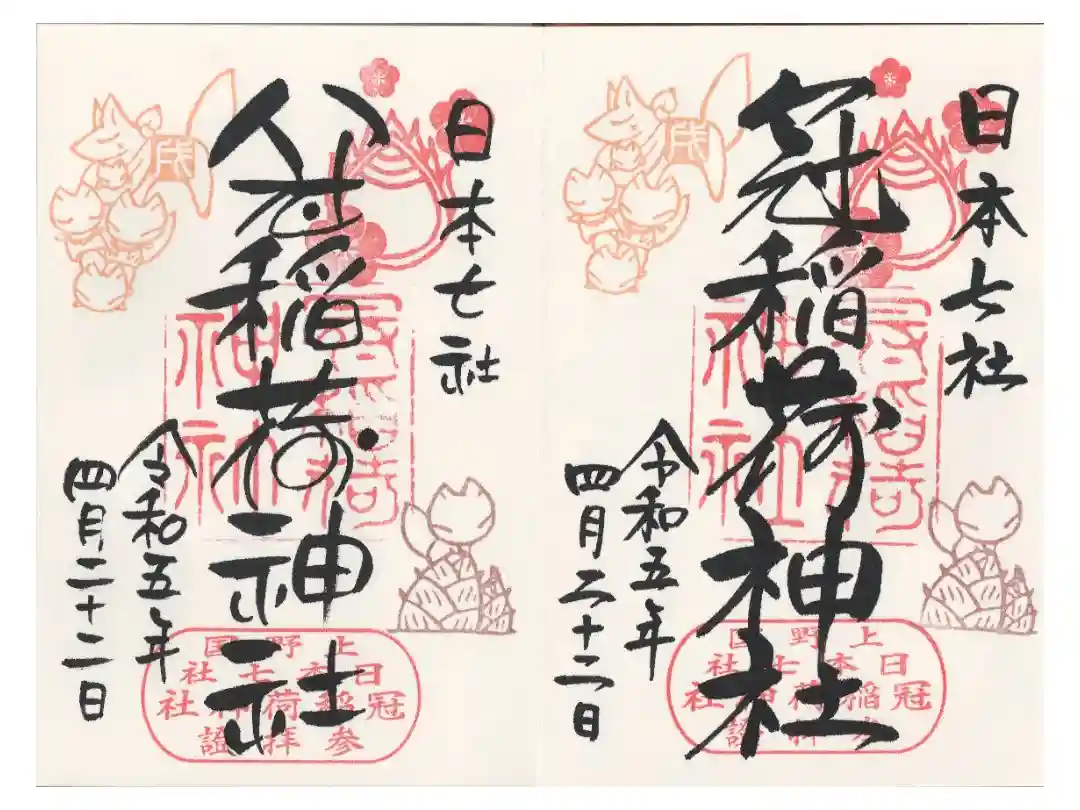 日本七社
冠稲荷神社
令和五年
四月二十二日
冠稲荷
神社
上野国
日本七社
冠稲荷神社
参拝證
日本七社
冠稲荷神社
令和五年
四月二十二日
冠稲荷
神社
上野国
日本七社
冠稲荷神社
参拝證